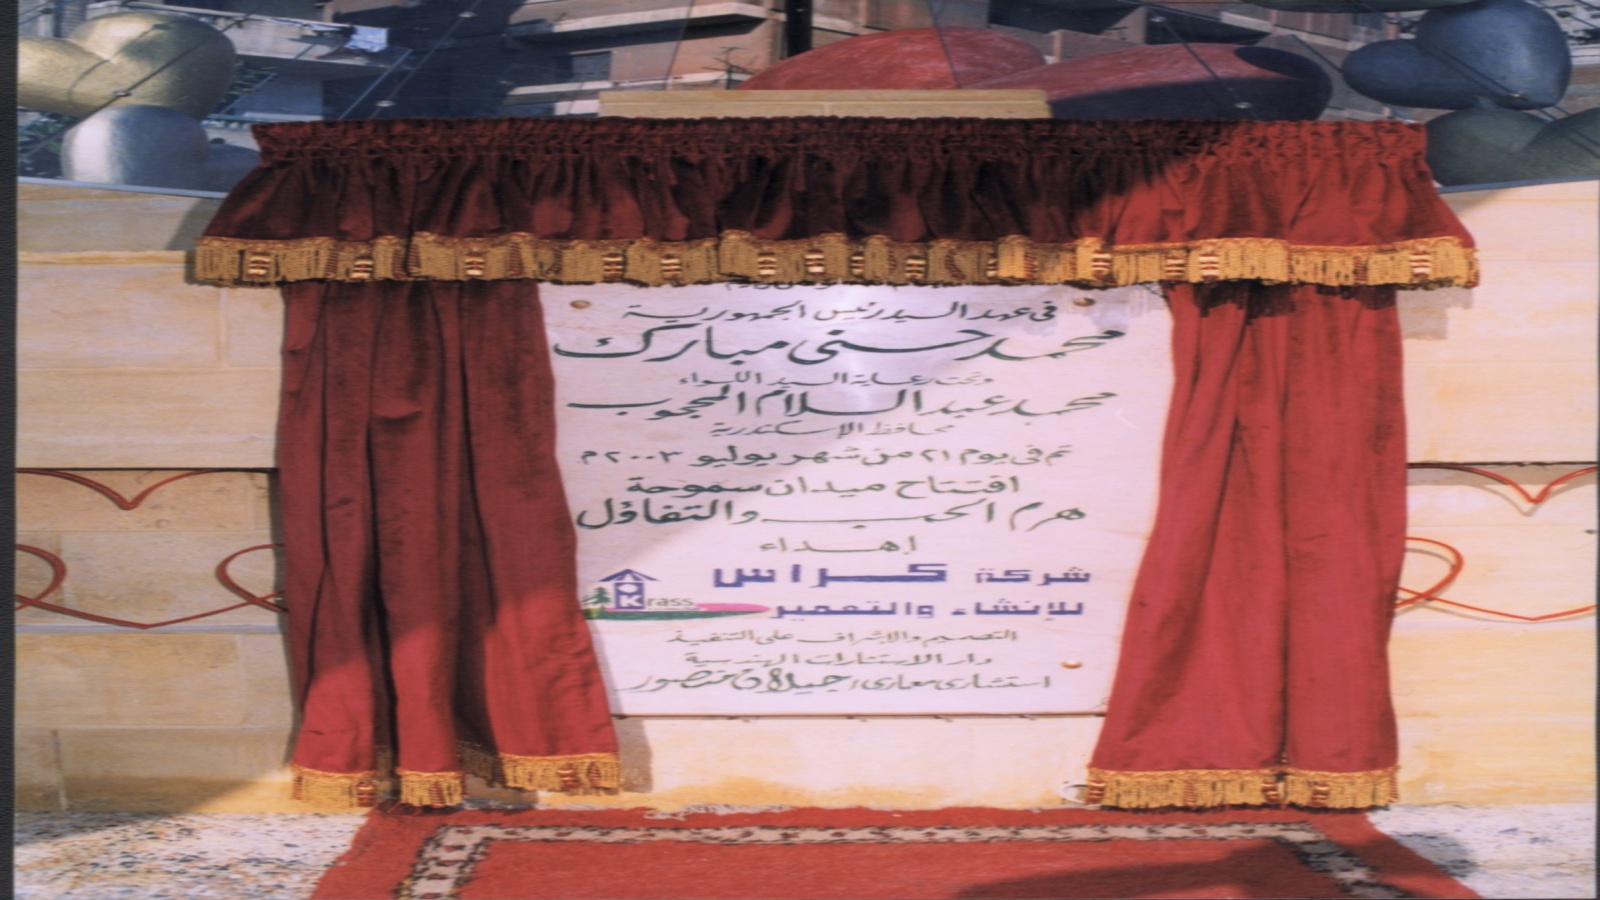 في عهد السيد رئيس الجمهورية
محمد حسني مبارك
وتحت رعاية السيد اللواء
محمد عبد السلام المحجوب
محافظ الإسكندرية
تم في يوم ٢١ من شهر يوليو ٢٠٠٣ م
افتتاح ميدان سموحة
هرم الحب والتفاؤل
إهداء
شركة كراس
للإنشاء والتعمير
Krass
التصميم والإشراف على التنفيذ
دار الاستشارات الهندسية
استشاري معماري / جيلان منصور